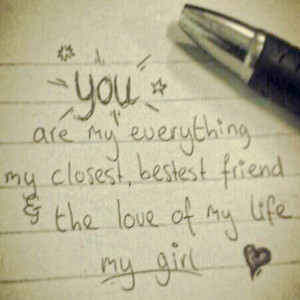 you
are my everything
my closest, bestest friend
& the love of my life
my girl